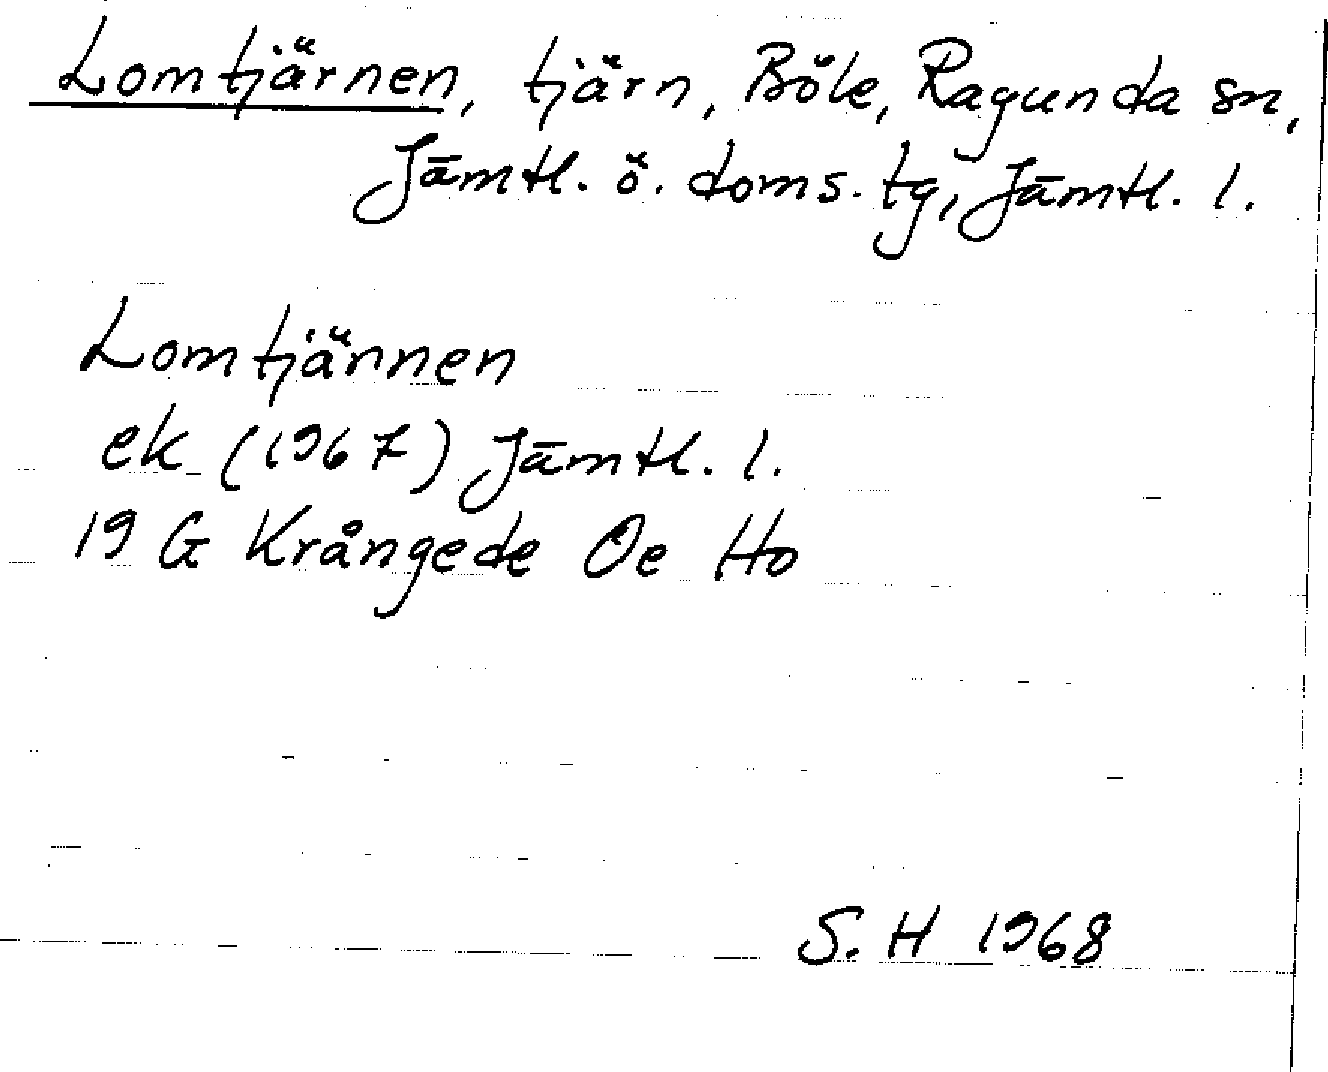 Lomtjärnen, tjärn, Böle, Ragunda sn,
Jämtl. ö. doms. tg, Jämtl. l.
Lomtjännen
ek (1967) Jämtl. l.
19 G Krångede Oe Ho
S. H 1968